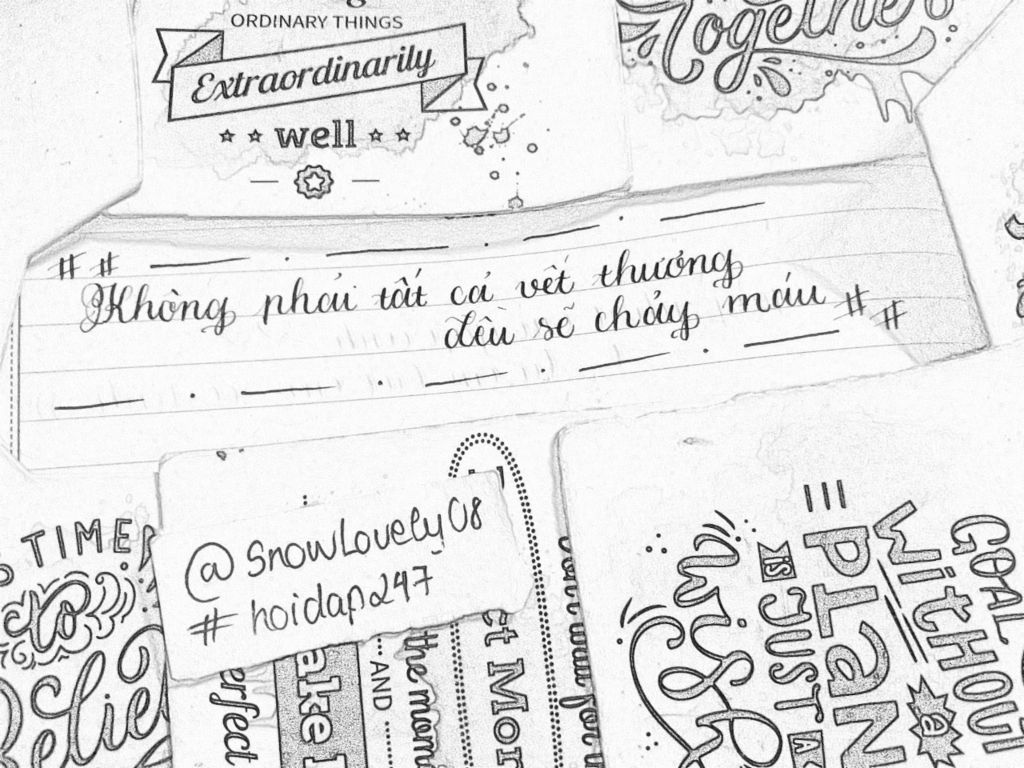 ORDINARY THINGS
Extraordinarily
well
Together
## Không phải tất cả vết thương
đều sẽ chảy máu ##
@SnowLovely08
#hoidap247
TIME
to
perfect
AND
the
PLAN
WITHOUT
GOAL
IS
JUST
A
wish